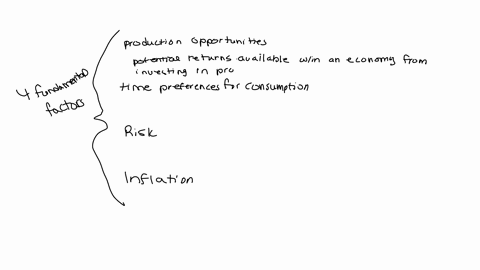 4 fundamental
factors
production opportunities
potential returns available w/in an economy from
investing in pro
time preferences for consumption
Risk
Inflation